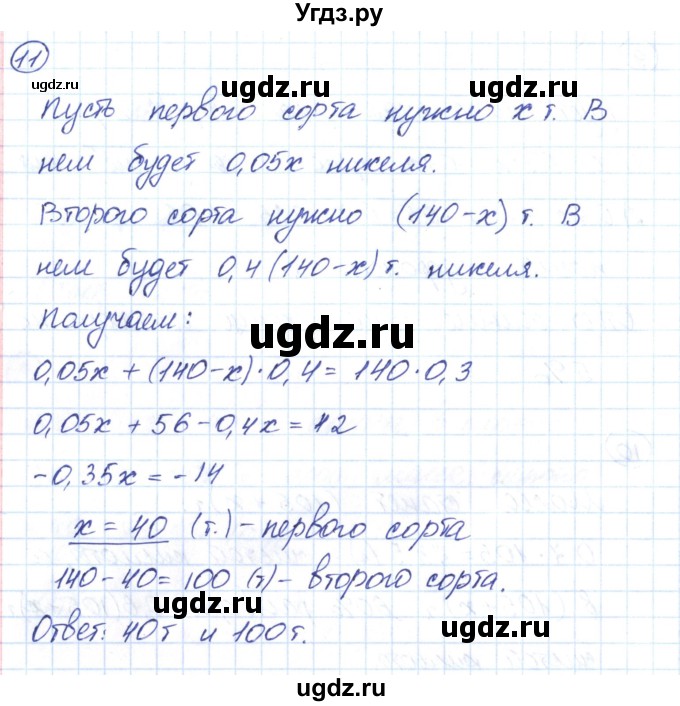 Угдз.ру
11
ugdz.ru ugdz.ru
Пусть первого сорта нужно x т. В
нем будет 0,05x никеля.
ugdz.ru ugdz.ru
Второго сорта нужно (140-x) т. В
нем будет 0,4(140-x) т. никеля.
Получаем:
ugdz.ru
0,05x + (140-x)·0,4 = 140·0,3
0,05x + 56 - 0,4x = 42
ugdz.ru ugdz.ru
-0,35x = -14
x = 40 (т.) - первого сорта
140-40 = 100 (т) - второго сорта.
ugdz.ru
Ответ: 40т и 100т.
ugdz.ru
ugdz.ru